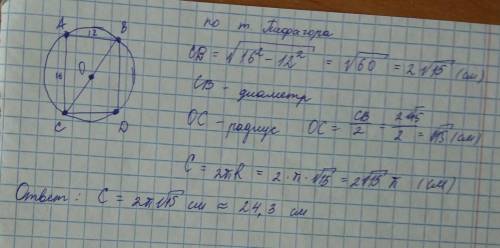 A
12
B
O
16
C
D
по т. Пифагора
CB = √16² - 12² = √60 = 2√15 (см)
CB - диаметр
OC - радиус OC = CB/2 = 2√15/2 = √15 (см)
C = 2πR = 2 · π · √15 = 2√15 π (см)
Ответ: C = 2π√15 см ≈ 24,3 см